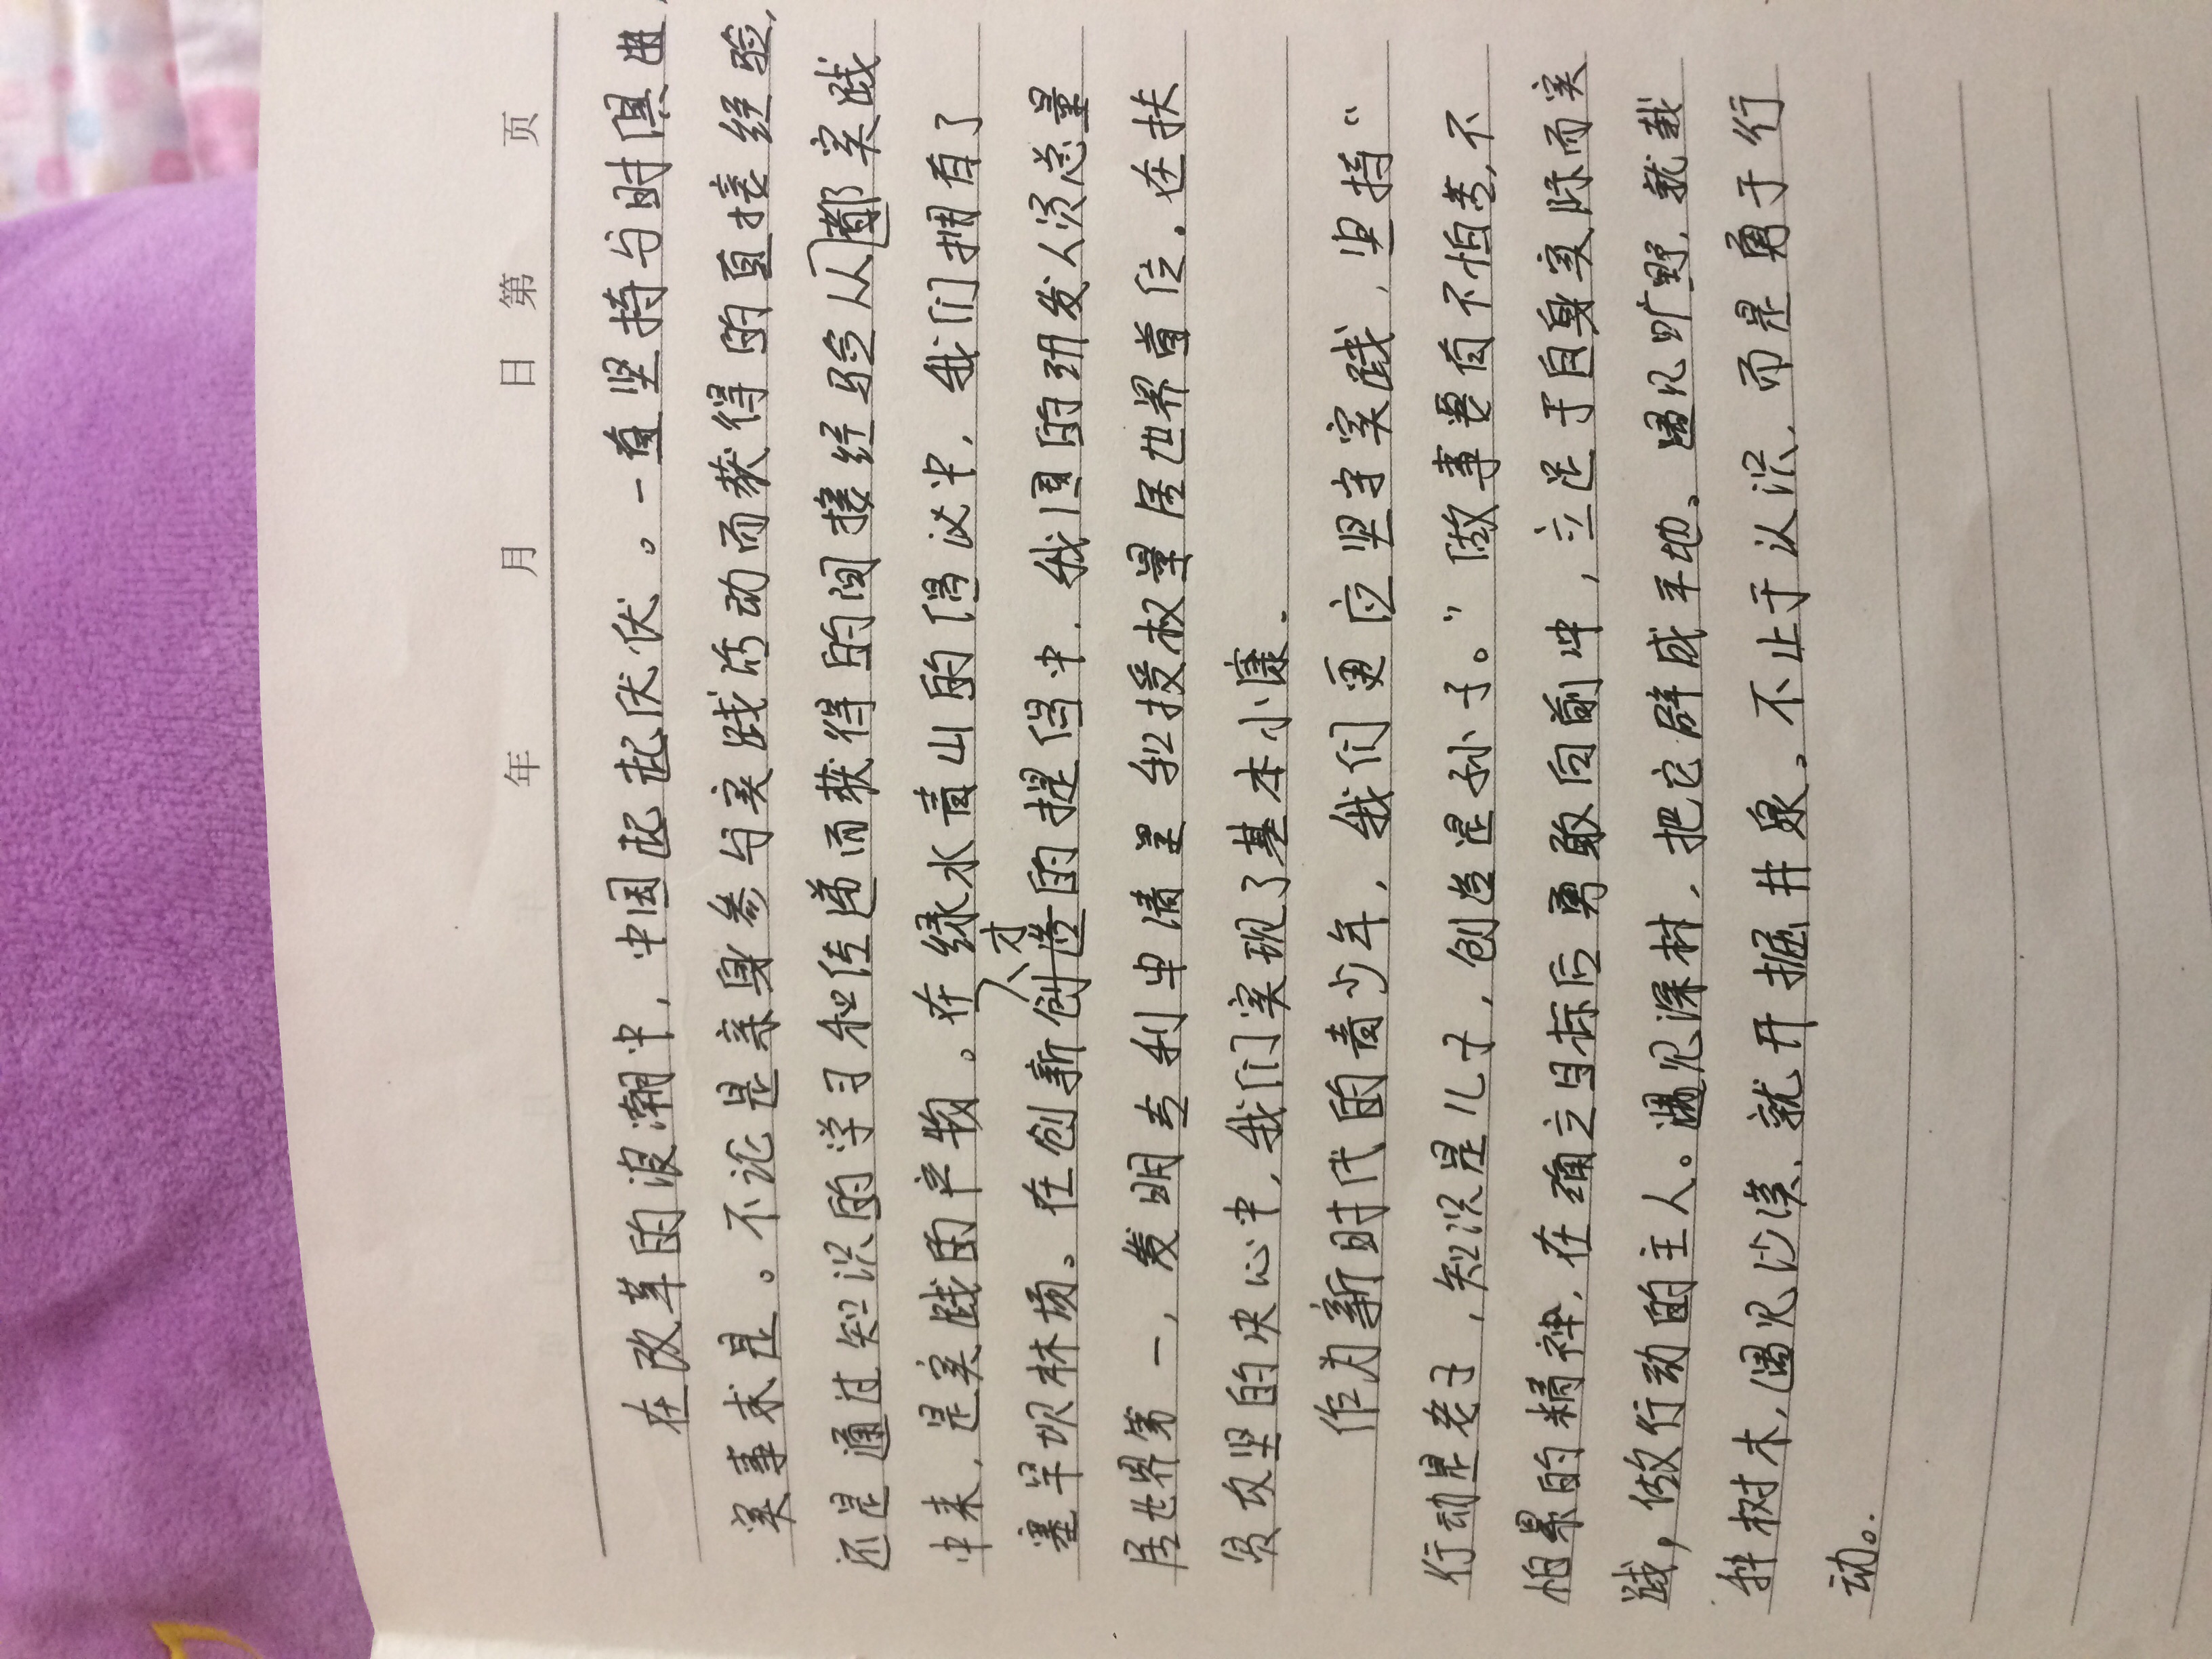 年 月 日 第 页
在改革的浪潮中,中国起起伏伏。一直坚持与时俱进,
实事求是。不论是亲身参与实践活动而获得的直接经验,
还是通过知识的学习和传递而获得的间接经验从都实践
中来,是实践的产物。在绿水青山的倡议中,我们拥有了
人才
塞罕坝林场。在创新创造的提倡中,我国的研发人员总量
居世界第一,发明专利申请量和授权量居世界首位。在扶
贫攻坚的决心中,我们实现了基本小康。
作为新时代的青少年,我们更应坚守实践,坚持“
行动是老子,知识是儿子,创造是孙子。”做事要有不怕苦,不
怕累的精神,在确立目标后勇敢向前冲,立足于自身实际而实
践,做行动的主人。遇见深林,把它辟成平地。遇见旷野,就栽
种树木,遇见沙漠,就开掘井泉。不止于认识,而是勇于行
动。